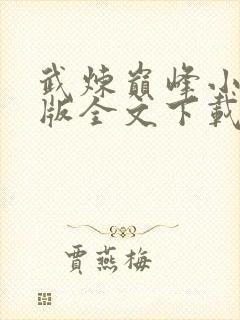 武煉巔峰小
版全文下載
賈燕梅